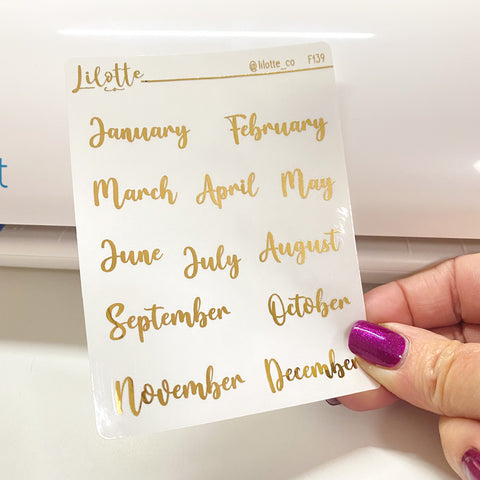 Lilotte @lilotte_co F139
January February
March April May
June July August
September October
November December
t